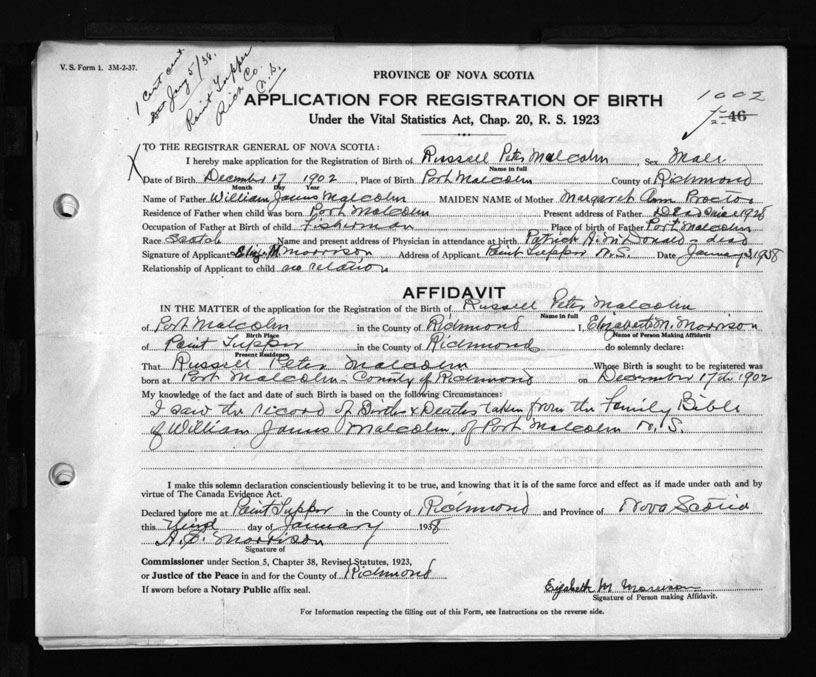 V. S. Form 1. 3M-2-37.
1 Cert sent
Jany 5/38.
Point Tupper
Rich Co.
N.S.
PROVINCE OF NOVA SCOTIA
1002
APPLICATION FOR REGISTRATION OF BIRTH
46
Under the Vital Statistics Act, Chap. 20, R. S. 1923
TO THE REGISTRAR GENERAL OF NOVA SCOTIA:
I hereby make application for the Registration of Birth of Russell Peter Malcolm Sex Male
Name in full
Date of Birth December 17 1902, Place of Birth Port Malcolm County of Richmond
Month Day Year
Name of Father William James Malcolm MAIDEN NAME of Mother Margaret Ann Proctor
Residence of Father when child was born Port Malcolm Present address of Father Dead since 1925
Occupation of Father at Birth of child Fisherman Place of birth of Father Port Malcolm
Race Scotch Name and present address of Physician in attendance at birth Patrick A. McDonald - dead
Signature of Applicant Eliz. M Morrison Address of Applicant Point Tupper N.S. Date January 3, 1938
Relationship of Applicant to child no relation
AFFIDAVIT
IN THE MATTER of the application for the Registration of the Birth of Russell Peter Malcolm
Name in full
of Port Malcolm in the County of Richmond I, Elizabeth M. Morrison
Birth Place Name of Person Making Affidavit
of Point Tupper in the County of Richmond do solemnly declare:
Present Residence
That Russell Peter Malcolm Whose Birth is sought to be registered was
born at Port Malcolm - County of Richmond on December 17th 1902
My knowledge of the fact and date of such Birth is based on the following Circumstances:
I saw the record of Births & Deaths taken from the Family Bible
of William James Malcolm, of Port Malcolm N.S.
I make this solemn declaration conscientiously believing it to be true, and knowing that it is of the same force and effect as if made under oath and by
virtue of The Canada Evidence Act.
Declared before me at Point Tupper in the County of Richmond and Province of Nova Scotia
this Third day of January 1938
Morrison
Signature of
Commissioner under Section 5, Chapter 38, Revised Statutes, 1923,
or Justice of the Peace in and for the County of Richmond
If sworn before a Notary Public affix seal.
Elizabeth M Morrison
Signature of Person making Affidavit.
For Information respecting the filling out of this Form, see Instructions on the reverse side.